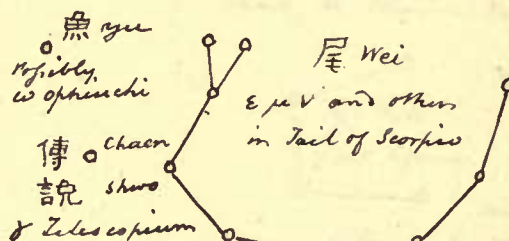 魚 yu
Possibly
ω ophiuchi
尾 Wei
ε μ ν and others
in Tail of Scorpio
傅 Chaen
說 Shwo
γ Telescopium